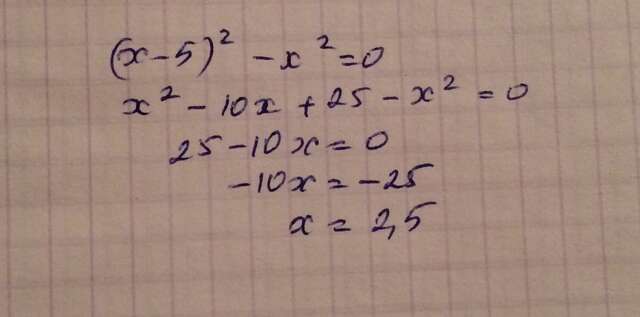 (x-5)² - x² = 0
x² - 10x + 25 - x² = 0
25 - 10x = 0
-10x = -25
x = 2,5